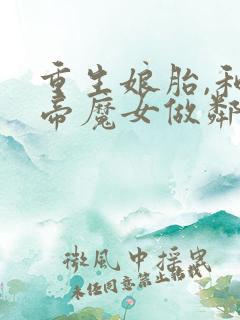 重生娘胎,和
帝魔女做鄰
微風中摇曳
未经同意禁止転載